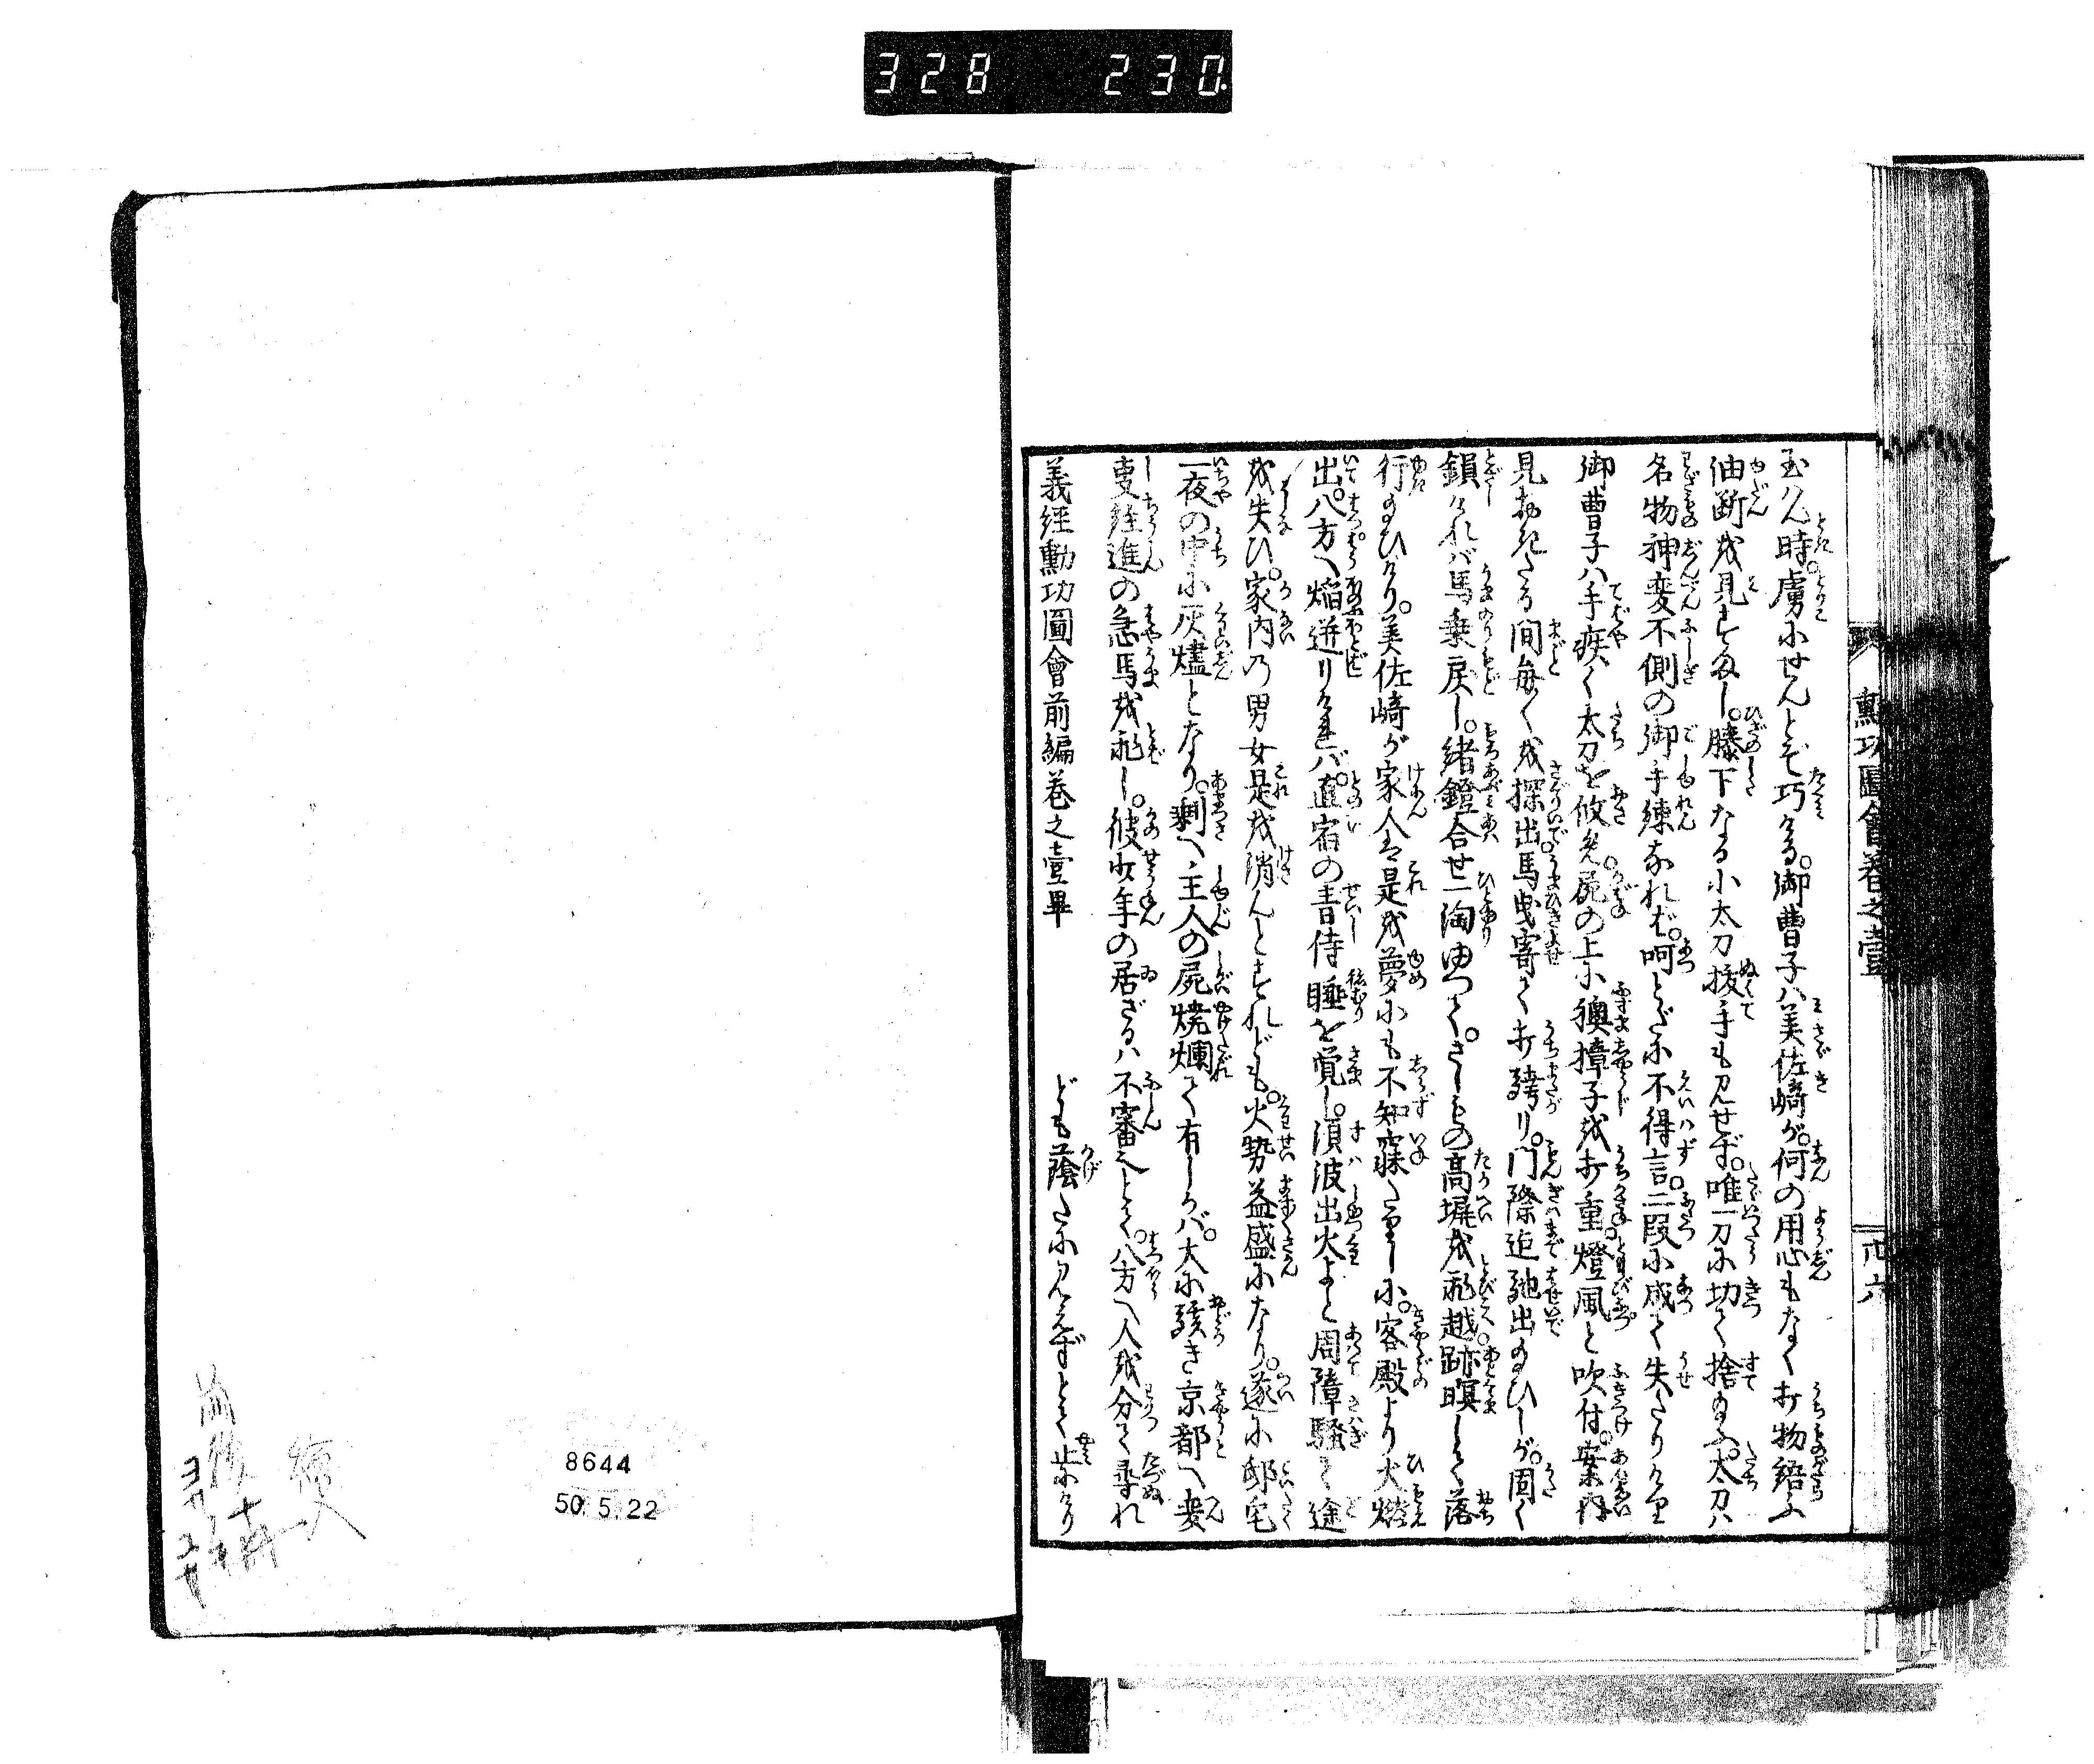 328 230
勲功圖會巻之壹
玉はん時。虜にせんとぞ巧ける。御曹子ハ美佐崎が。何の用心もなく打物語ふ
油断を見すまし。膝下なる小太刀抜手も見せず。唯一刀に切て捨給ふ。太刀ハ
名物神変不側の御手練なれば。呵とだに不得言。二段に成て失たりける
御曹子ハ手疾く太刀を攸め。屍の上に襖障子を打重。燈風と吹付。案内
見おきたる間毎〱を探出。馬曳寄て打跨リ。門際迄馳出給ひしが。固く
鎖けれバ馬乗戻し。緒鐙合せ一淘ゆつて。さしもの高塀を飛越。跡暝して落
行給ひけり。美佐崎が家人等是を夢にも不知寐たりしに。客殿より火燃
出。八方へ焔迸リければ。直宿の青侍睡を覚し。須波出火よと周障騒て途
を失ひ。家内の男女是を消んとすれども。火勢益盛になり。遂に邸宅
一夜の中に灰燼となり。剰へ主人の屍焼爛て有しかバ。大に驚き京都へ変
事註進の急馬を飛し。彼少年の居ざるハ不審也とて。八方へ人を分て尋れ
ども蔭だに見えずとて止にけり
義經勳功圖會前編巻之壹畢
8644
50.5.22